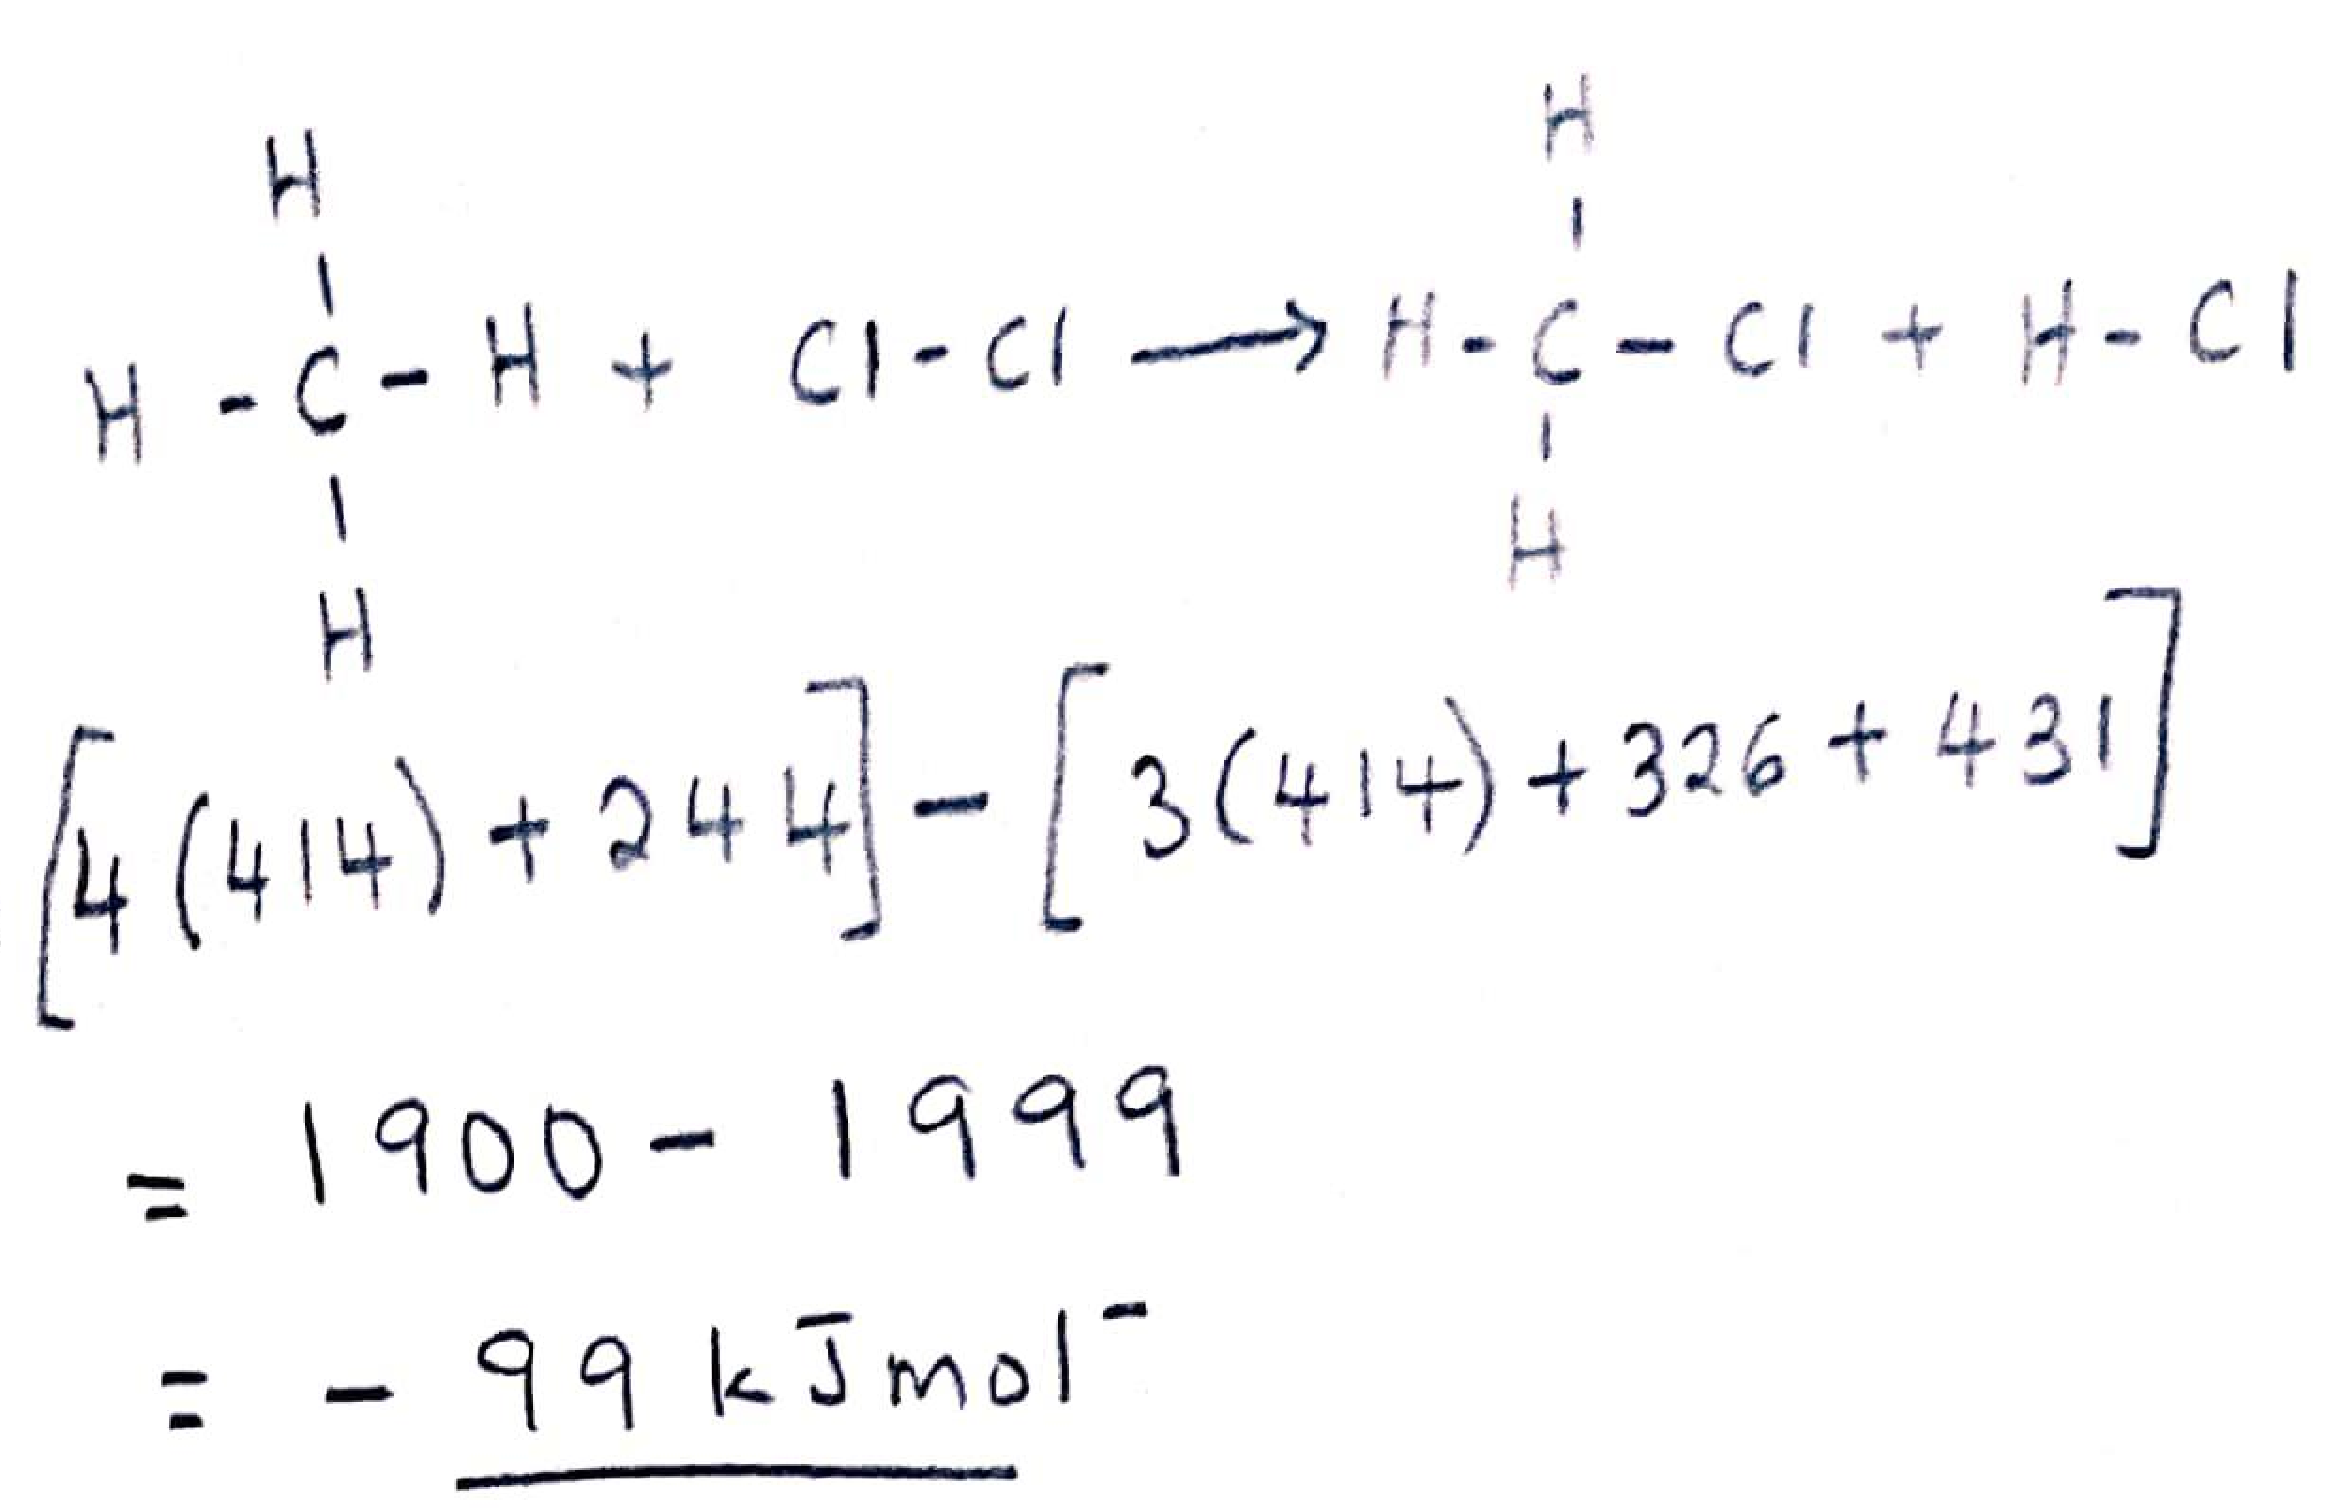 H
H
H - C - H + Cl - Cl ⟶ H - C - Cl + H - Cl
H
H
[4(414) + 244] - [3(414) + 326 + 431]
= 1900 - 1999
= - 99 kJmol⁻